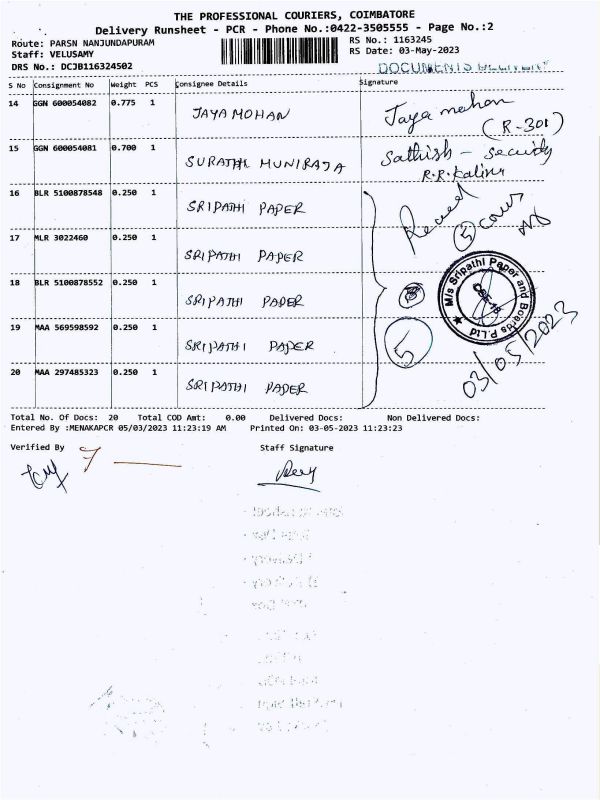 THE PROFESSIONAL COURIERS, COIMBATORE
Delivery Runsheet - PCR - Phone No.:0422-3505555 - Page No.:2
Route: PARSN NANJUNDAPURAM RS No.: 1163245
Staff: VELUSAMY RS Date: 03-May-2023
DRS No.: DCJB116324502
DOCUMENTS DELIVERY
S No Consignment No Weight PCS Consignee Details Signature
14 GGN 600054082 0.775 1 JAYA MOHAN Jaya mohan
(R-301)
15 GGN 600054081 0.700 1 MUNIRAJA Sathish - Security
R.R.
16 BLR 5100878548 0.250 1 SRIPATHI PAPER
17 MLR 3022460 0.250 1 SRIPATHI PAPER
5
18 BLR 5100878552 0.250 1 SRIPATHI PAPER
M/s Sripathi Paper and Boards P.Ltd
19 MAA 569598592 0.250 1 SRIPATHI PAPER 5
03/05/2023
20 MAA 297485323 0.250 1 SRIPATHI PAPER
Total No. Of Docs: 20 Total COD Amt: 0.00 Delivered Docs: Non Delivered Docs:
Entered By :MENAKAPCR 05/03/2023 11:23:19 AM Printed On: 03-05-2023 11:23:23
Verified By Staff Signature